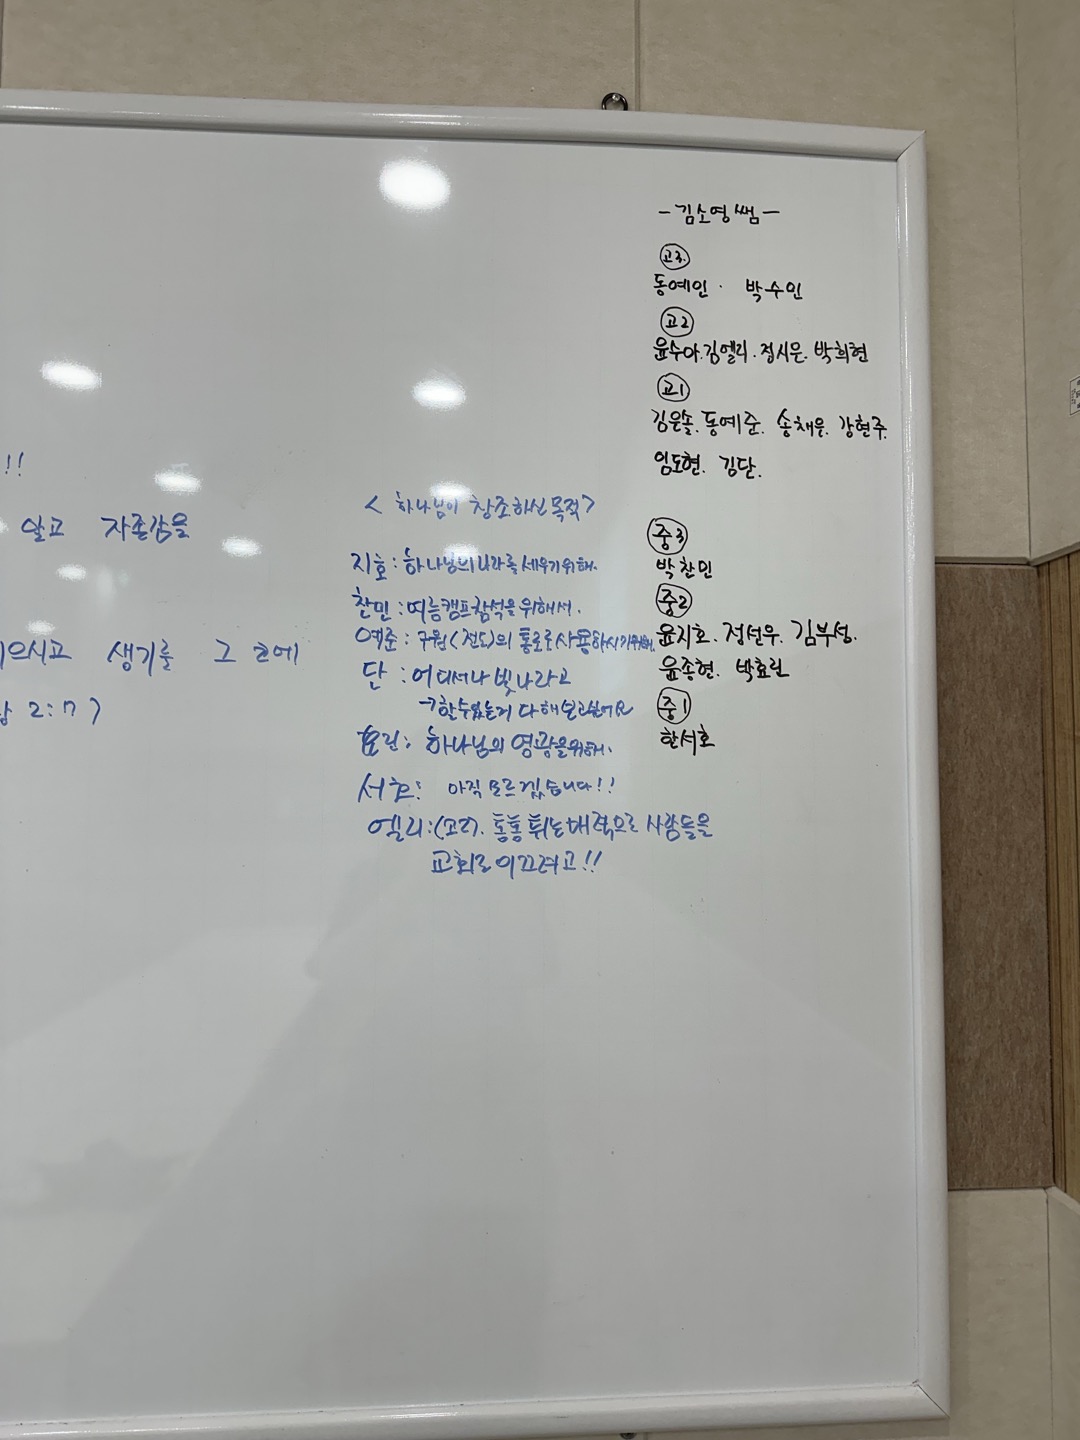 !!
알고 자존감을
으시고 생기를 그 코에
2:7)
< 하나님이 창조하신 목적>
지호: 하나님의 나라를 세우기위해.
찬민: 여름캠프참석을 위해서.
예준: 구원(전도)의 통로로 사용하시기위해.
단: 어디서나 빛나라고
→할수있는거 다 해보고싶어요
효린: 하나님의 영광을위해.
서호: 아직 모르겠습니다!!
엘리:(고2). 통통 튀는 매력으로 사람들을
교회로 이끄려고!!
-김소영쌤-
고3.
동예인 · 박수인
고2
윤수아.김엘리.정시은.박희현
고1
김은솔.동예준. 송채은. 강현주.
임도현. 김단.
중3
박찬민
중2
윤지호. 정선우. 김부성.
윤종현. 박효린
중1
한서호